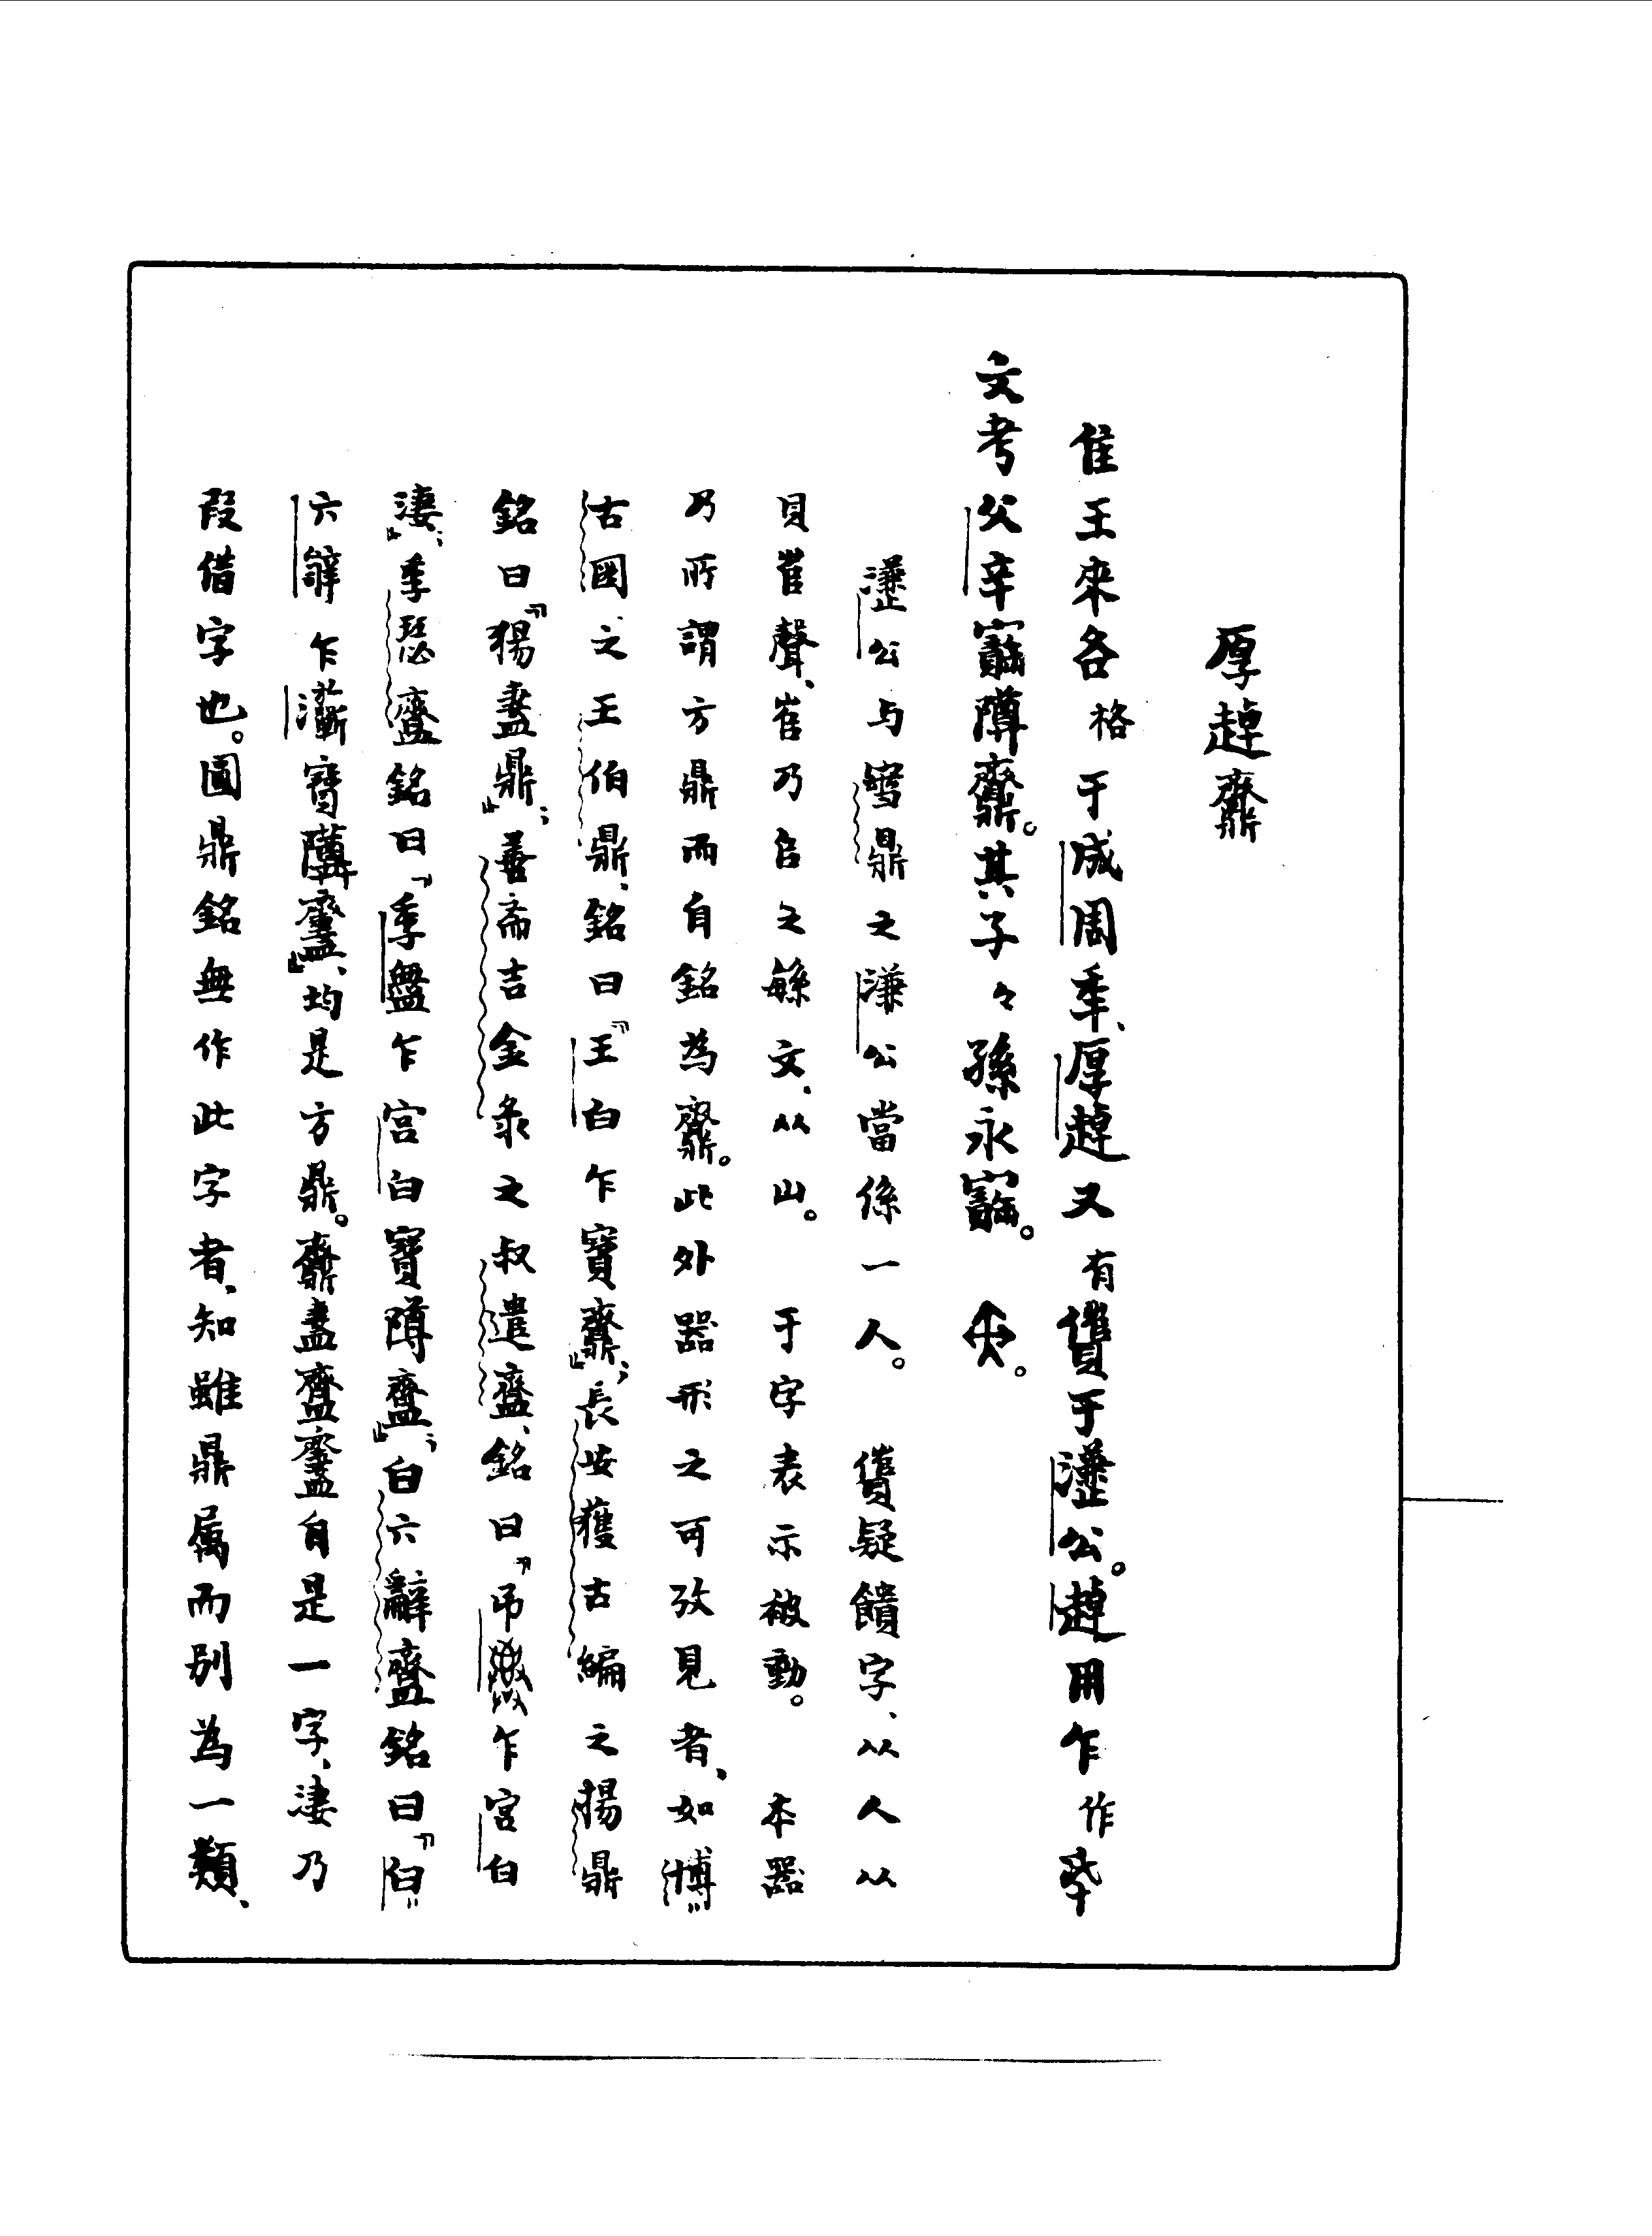 厚趠齋
隹王來各格于成周年、厚趠又有儥于溓公。趠用乍作
文考父辛寶𨻰齋。其子々孫永寶。
溓公与𩁹鼎之溓公當係一人。儥疑饋字、从人从
貝𠂤聲、𠂤乃𠂤之緐文、从山。于字表示被動。本器
乃所謂方鼎而自銘為齋。此外器形之可攷見者、如博
古圖之王伯鼎、銘曰『王白乍寶齋』；長安獲古編之揚鼎
銘曰『揚𥁕鼎』；善斋吉金彔之叔遣𥂴、銘曰『弔乍宮白
淒』；季盨銘曰『季盤乍宮白寶𨻰𥂴』；白六辭𥂴銘曰『白
六辥乍寶𨻰𥂴』、均是方鼎。齋𥁕𥂴自是一字、淒乃
叚借字也。圓鼎銘無作此字者、知雖鼎属而別為一類、